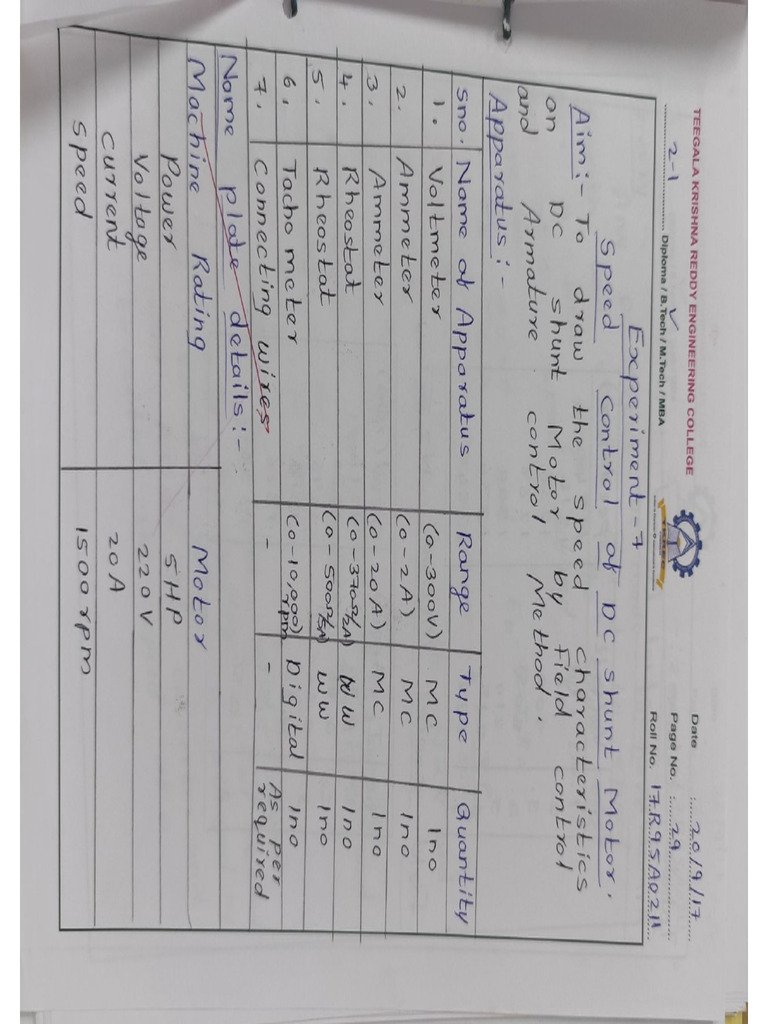 TEEGALA KRISHNA REDDY ENGINEERING COLLEGE
2-1 V Diploma / B.Tech / M.Tech / MBA
Date : 20/9/17
Page No. : 29
Roll No. 17R95A0211
Experiment - 7
Speed Control of DC shunt Motor.
Aim:- To draw the speed characteristics
on DC shunt Motor by field control
and Armature control Method.
Apparatus:-
Sno. Name of Apparatus Range Type Quantity
1. Voltmeter (0-300V) MC 1no
2. Ammeter (0-2A) MC 1no
3. Ammeter (0-20A) MC 1no
4. Rheostat (0-370Ω/2A) WW 1no
5. Rheostat (0-500Ω/5A) WW 1no
6. Tachometer (0-10,000) rpm Digital 1no
7. Connecting wires - - As per required
Name plate details:-
Machine Rating Motor
Power 5HP
Voltage 220V
current 20A
speed 1500rpm